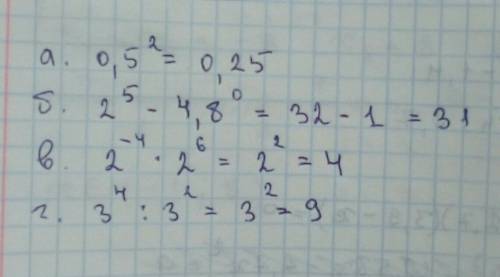 а. 0,5² = 0,25
б. 2⁵ - 4,8⁰ = 32 - 1 = 31
в. 2⁻⁴ · 2⁶ = 2² = 4
г. 3⁴ : 3² = 3² = 9